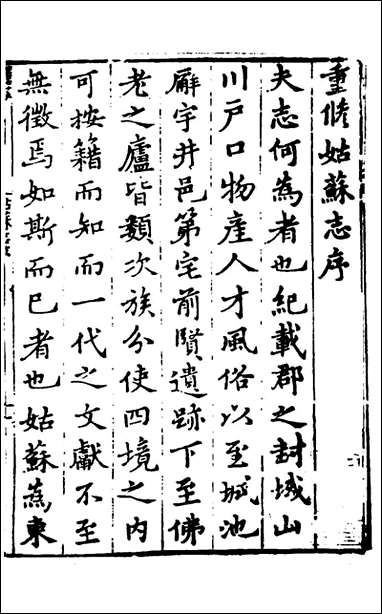 重脩姑蘇志序
夫志何為者也紀載郡之封域山
川戶口物產人才風俗以至城池
廨宇井邑第宅前賢遺跡下至佛
老之廬皆類次族分使四境之內
可按籍而知而一代之文獻不至
無徵焉如斯而已者也姑蘇為東